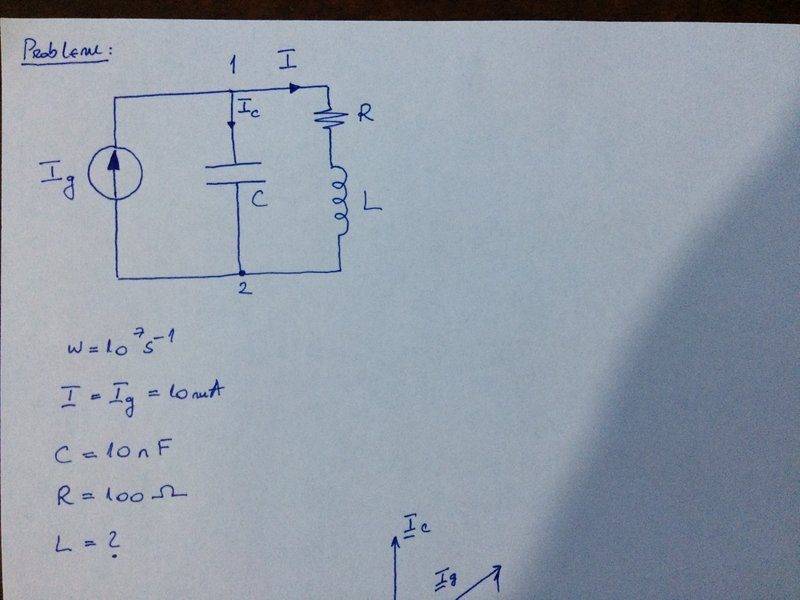 Problem:
1 I
I_c
R
I_g
C
L
2
w = 10^7 s^-1
I = I_g = 10 mA
C = 10 nF
R = 100 Ω
L = ?
I_c
I_g